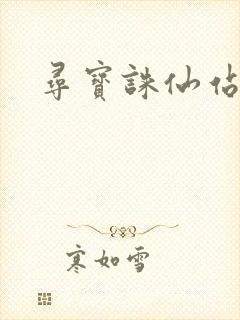 尋寶誅仙佔
寒如雪